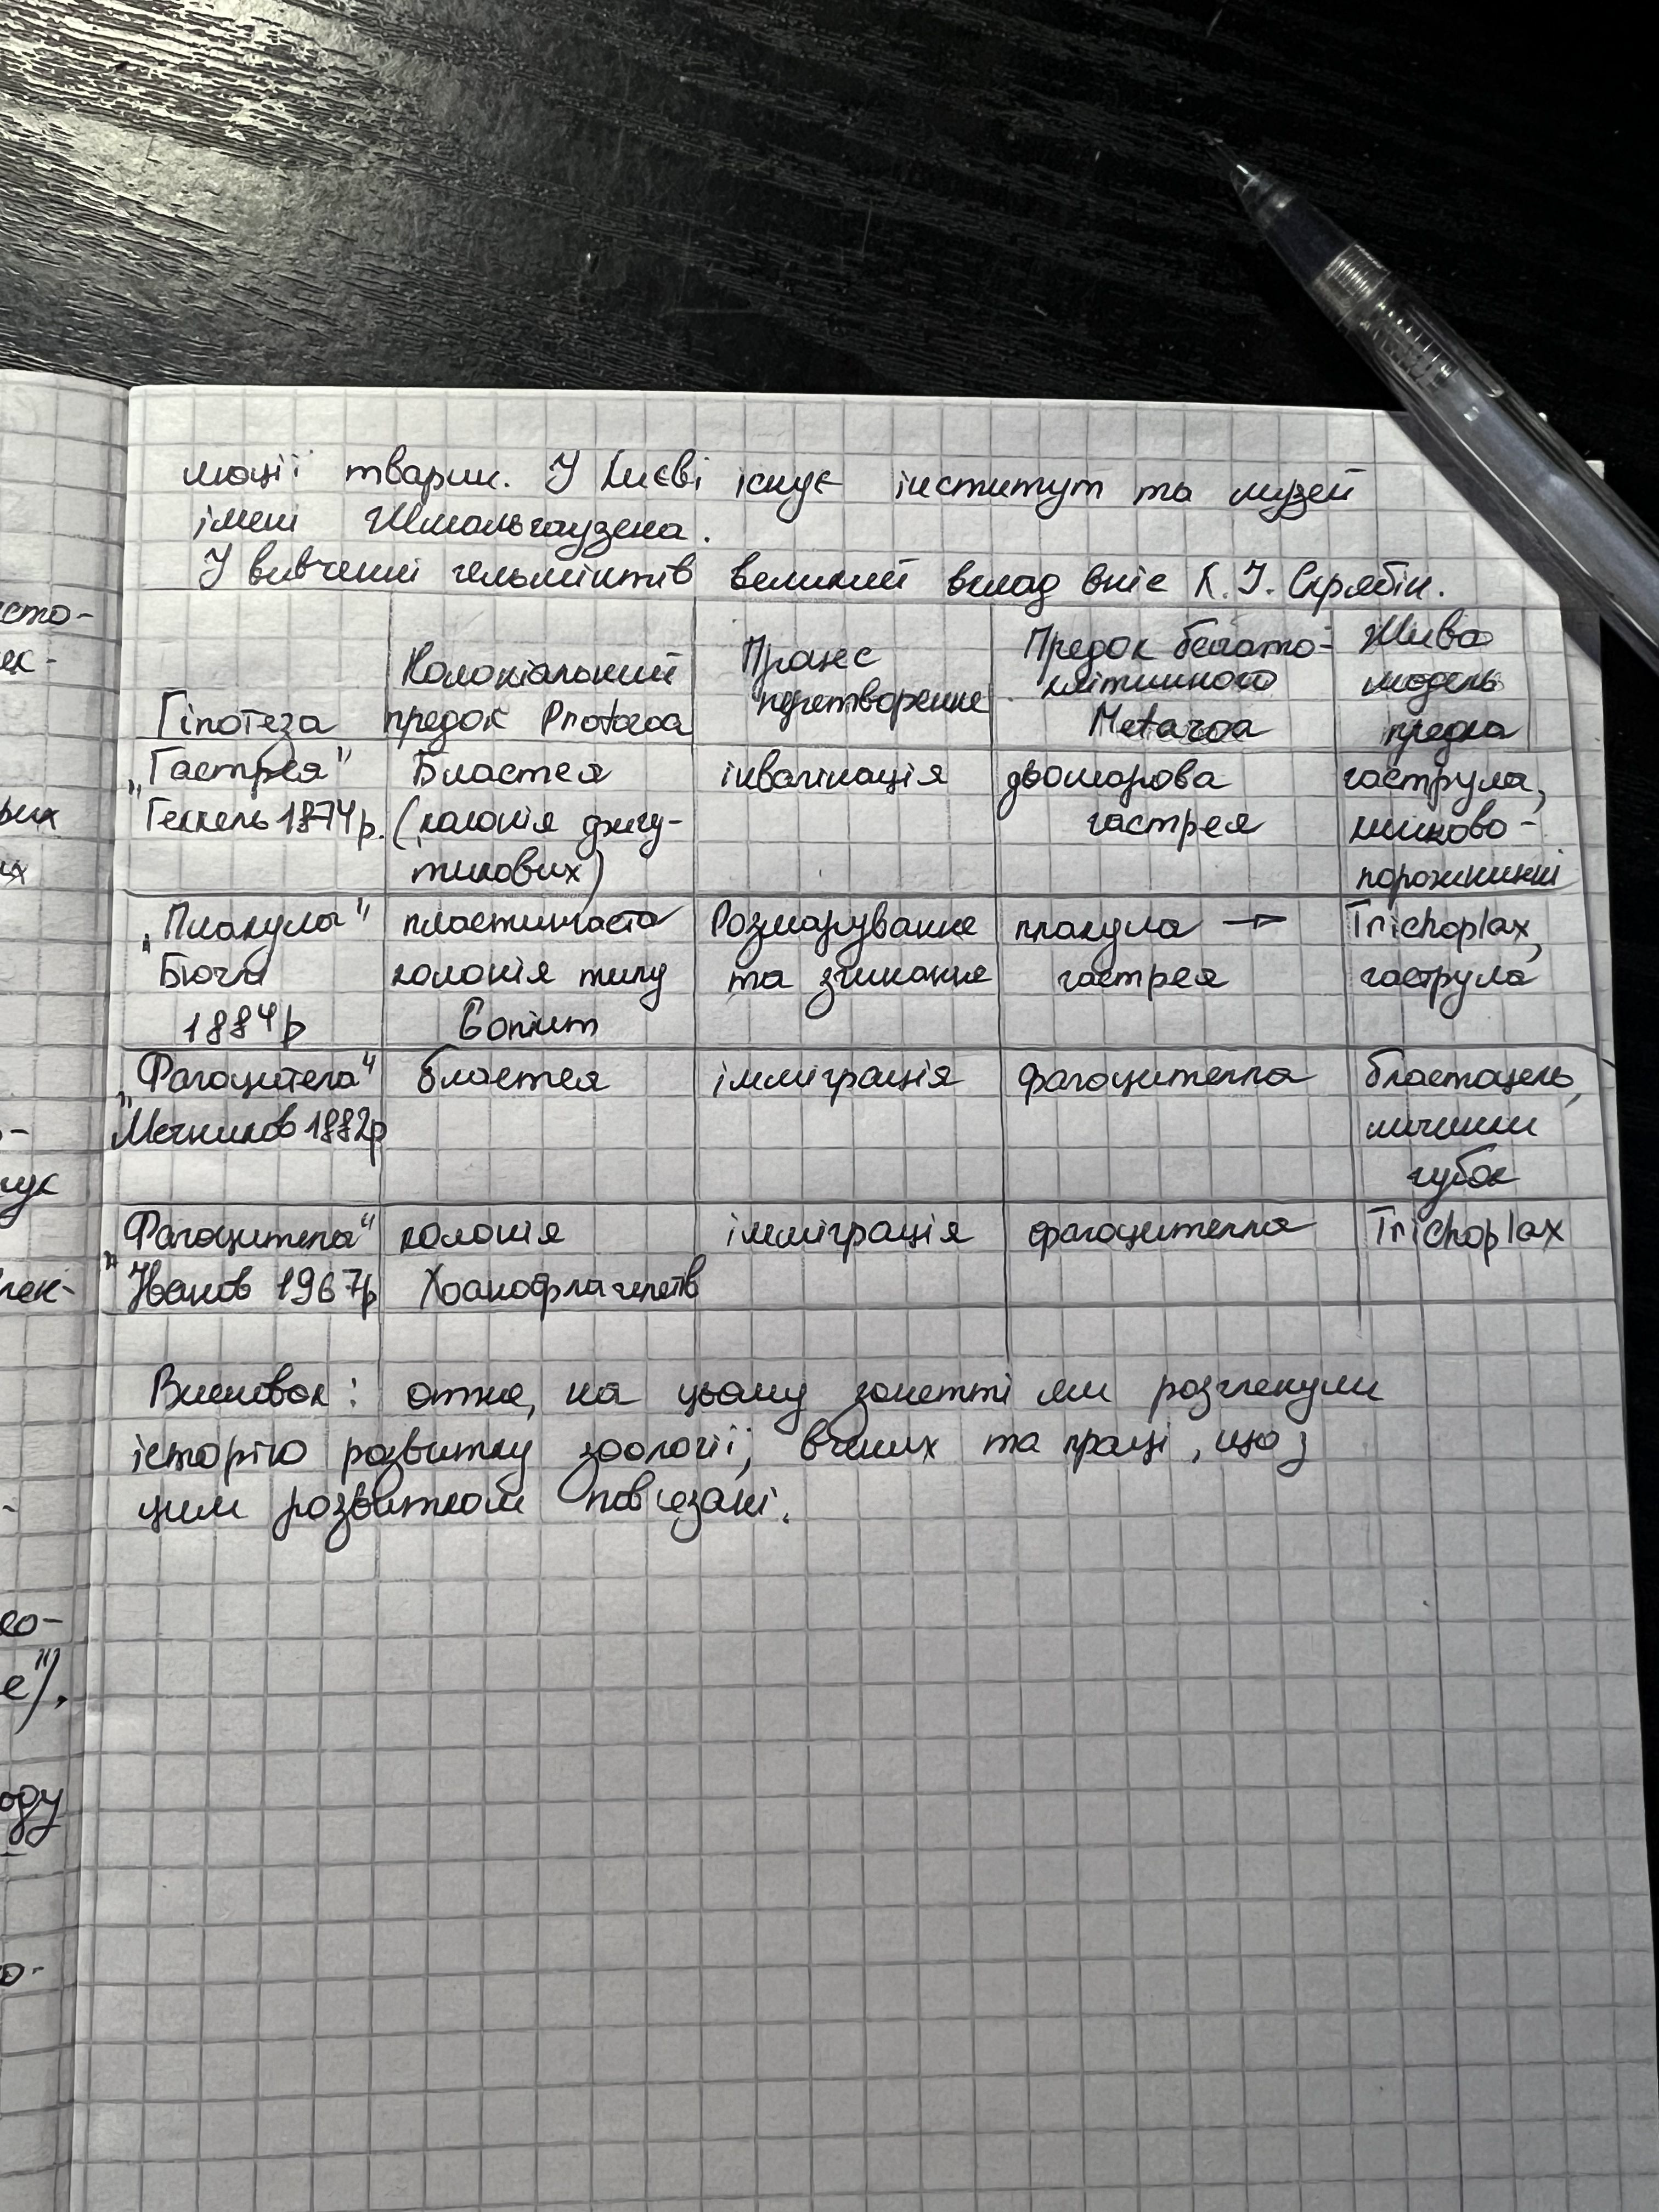 люції тварин. У Києві існує інститут та музей
імені Шмальгаузена.
У вивченні гельмінтів великий вклад вніс К. І. Скрябін.
Гіпотеза
Колоніальний
предок Protozoa
Процес
перетворення
Предок багато-
клітинного
Metazoa
Жива
модель
предка
„Гастрея"
Геккель 1874р.
Бластея
(колонія джгу-
тикових)
інвагінація
двошарова
гастрея
гаструла,
кишково-
порожнинні
„Плакула"
Бючлі
1884р
пластинчаста
колонія типу
Gonium
Розшарування
та змикання
плакула →
гастрея
Trichoplax,
гаструла
„Фагоцитела"
Мечников 1882р
бластея
імміграція
фагоцителла
бластоцель,
личинки
губок
„Фагоцитела"
Іванов 1967р
колонія
Хоанофлагелятів
імміграція
фагоцителла
Trichoplax
Висновок: отже, на цьому занятті ми розглянули
історію розвитку зоології, вчених та праці, що з
цим розвитком пов'язані.
сто-
ек-
рих
их
гук
лек-
ео-
е").
оду
о-